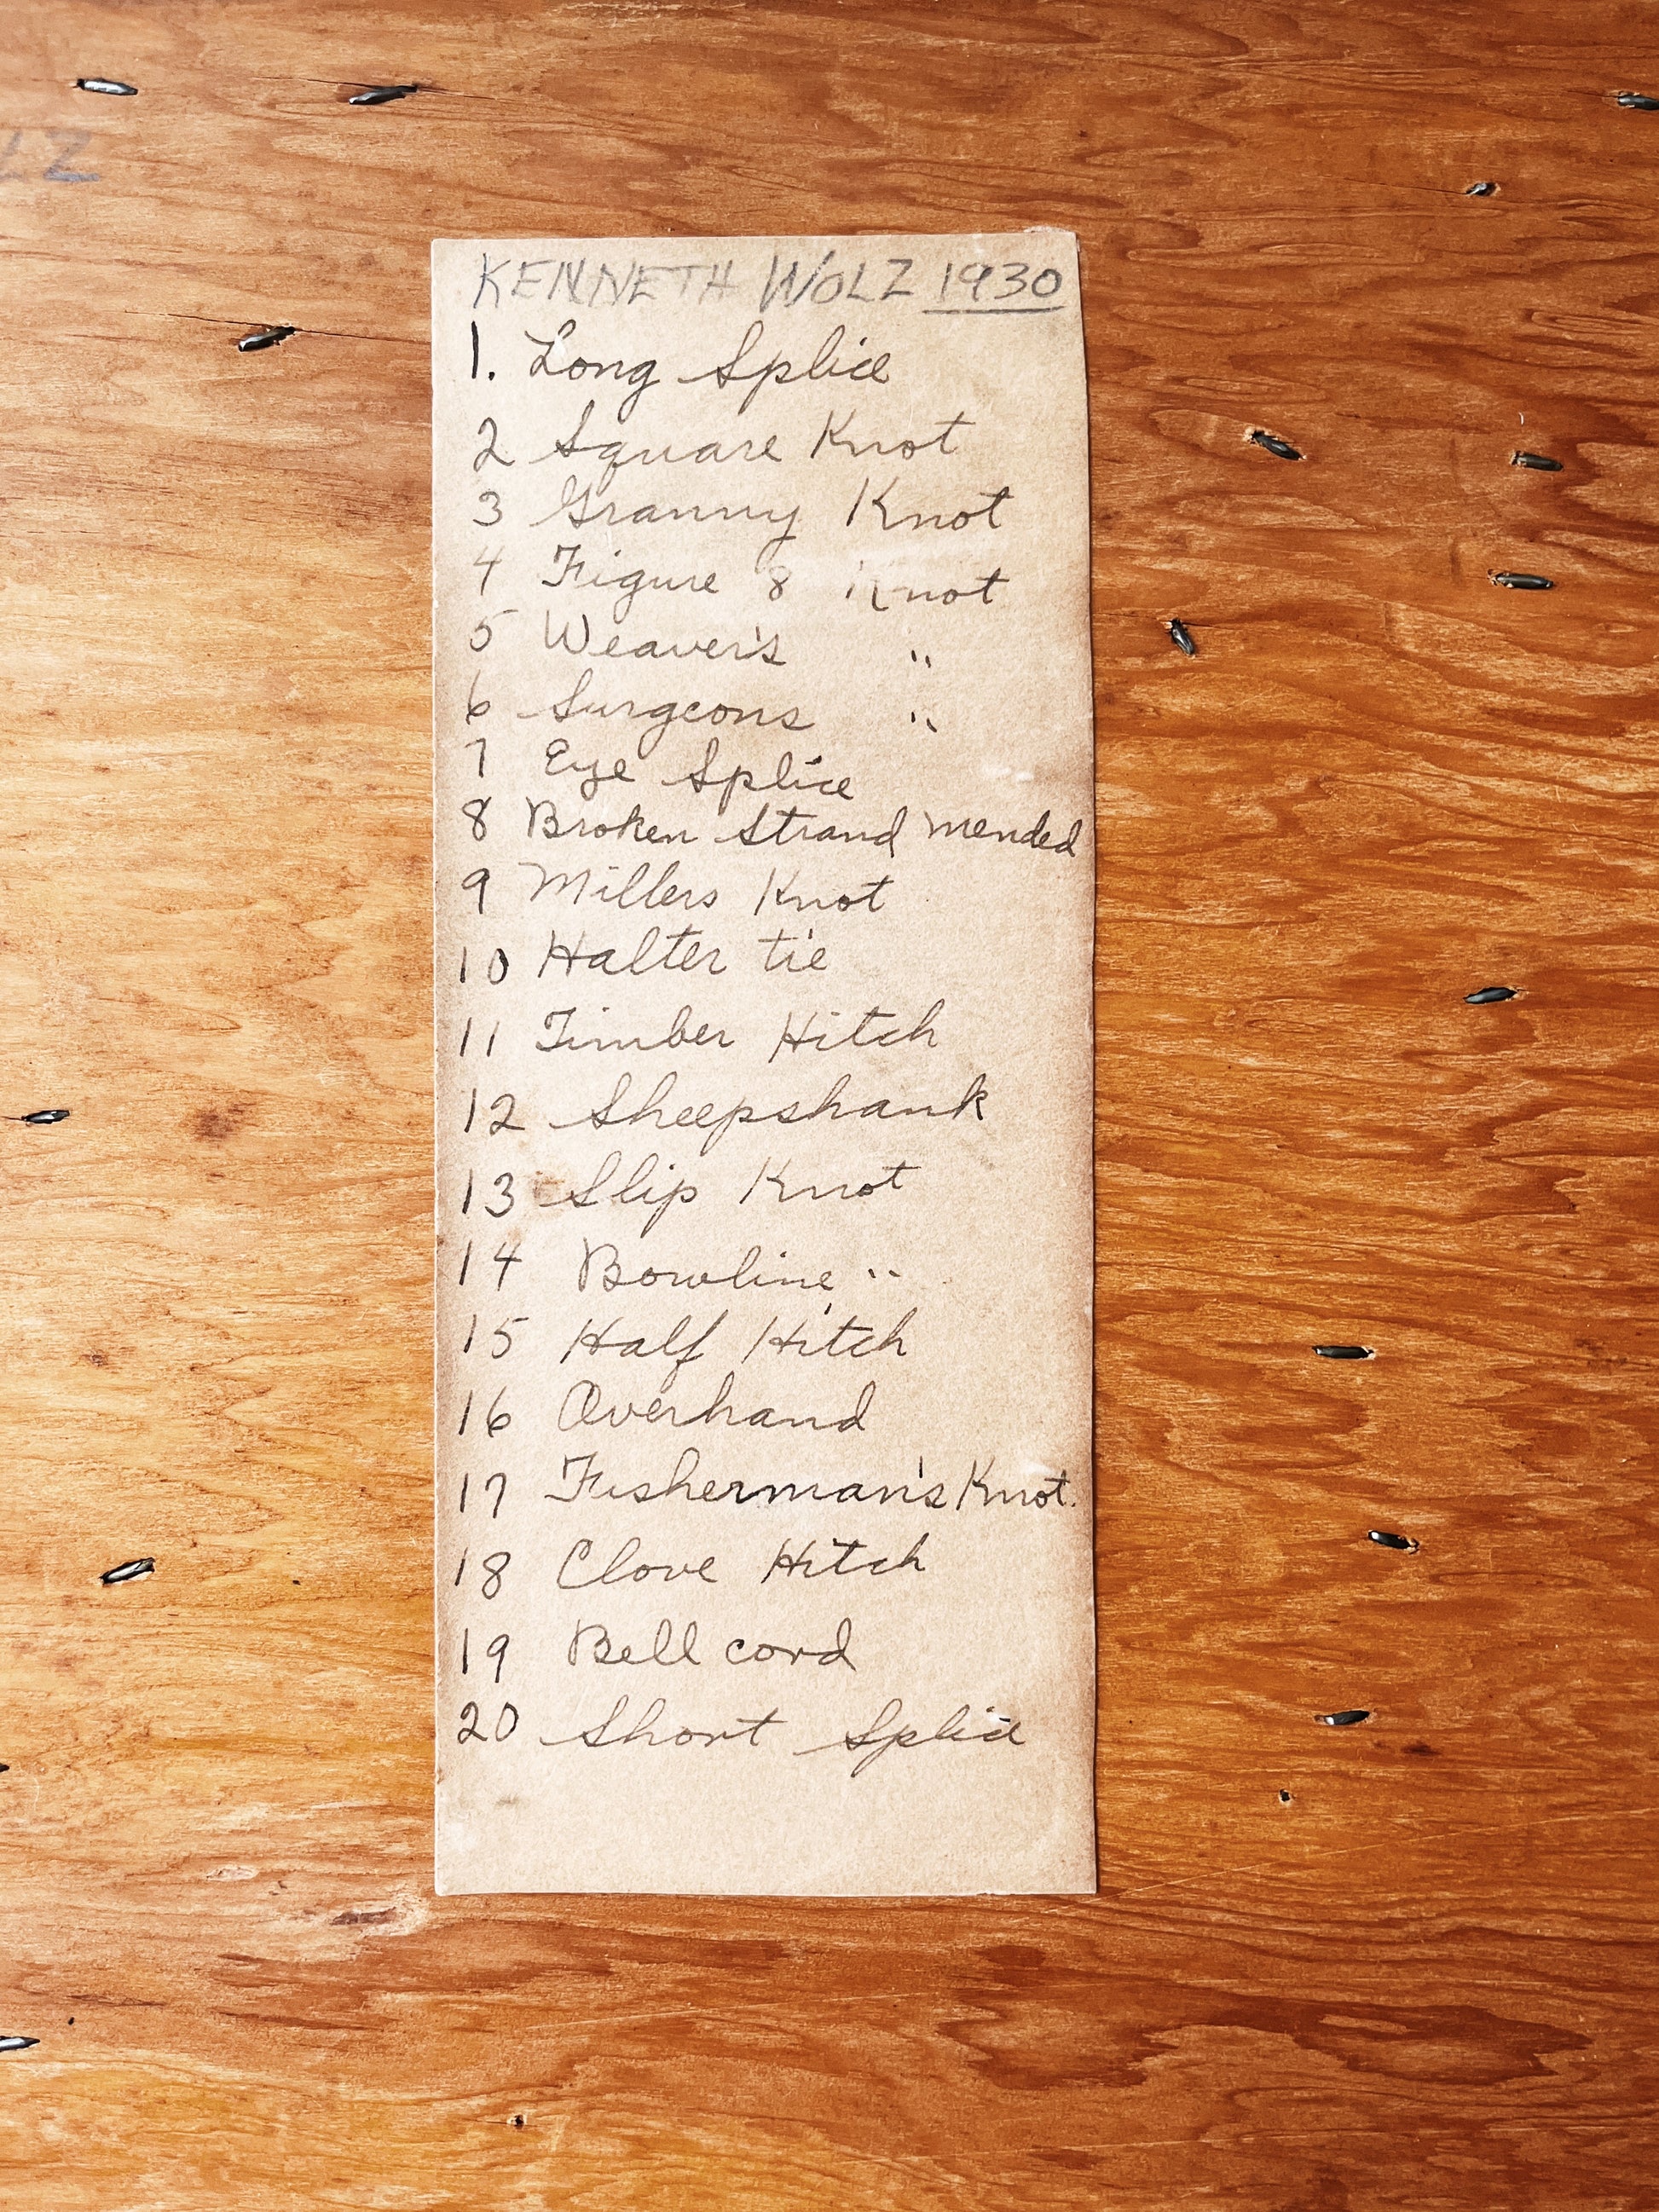 LZ
KENNETH WOLZ 1930
1. Long Splice
2 Square Knot
3 Granny Knot
4 Figure 8 Knot
5 Weaver's "
6 Surgeons "
7 Eye Splice
8 Broken Strand Mended
9 Millers Knot
10 Halter tie
11 Timber Hitch
12 Sheepshank
13 Slip Knot
14 Bowline "
15 Half Hitch
16 Overhand
17 Fisherman's Knot.
18 Clove Hitch
19 Bell cord
20 Short Splice